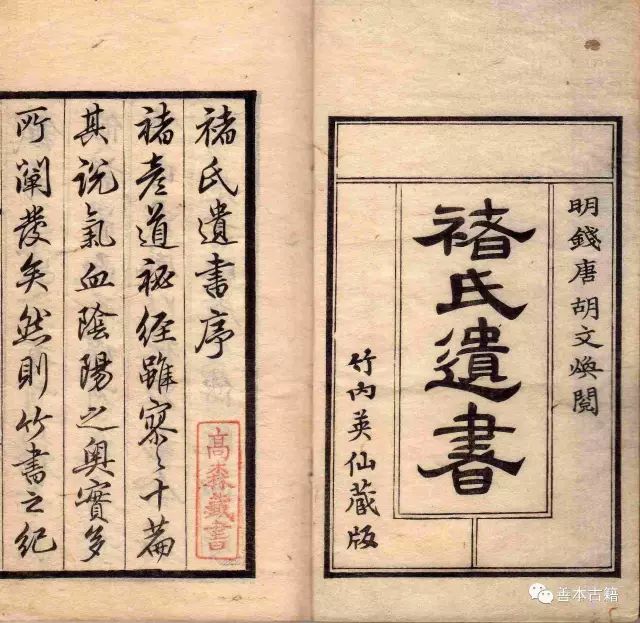 明錢唐胡文煥閱
褚氏遺書
竹內英仙藏版
褚氏遺書序
褚彥道祕經雖寥〻十篇
其説氣血陰陽之奧實多
所闡發矣然則竹書之紀
高森藏書
善本古籍